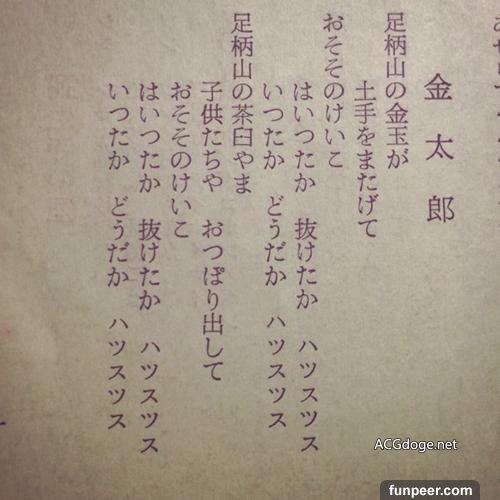 金太郎
足柄山の金玉が
土手をまたげて
おそそのけいこ
はいつたか 抜けたか ハツスツス
いつたか どうだか ハツスツス
足柄山の茶臼やま
子供たちや おつぽり出して
おそそのけいこ
はいつたか 抜けたか ハツスツス
いつたか どうだか ハツスツス
ACGdoge.net
funpeer.com